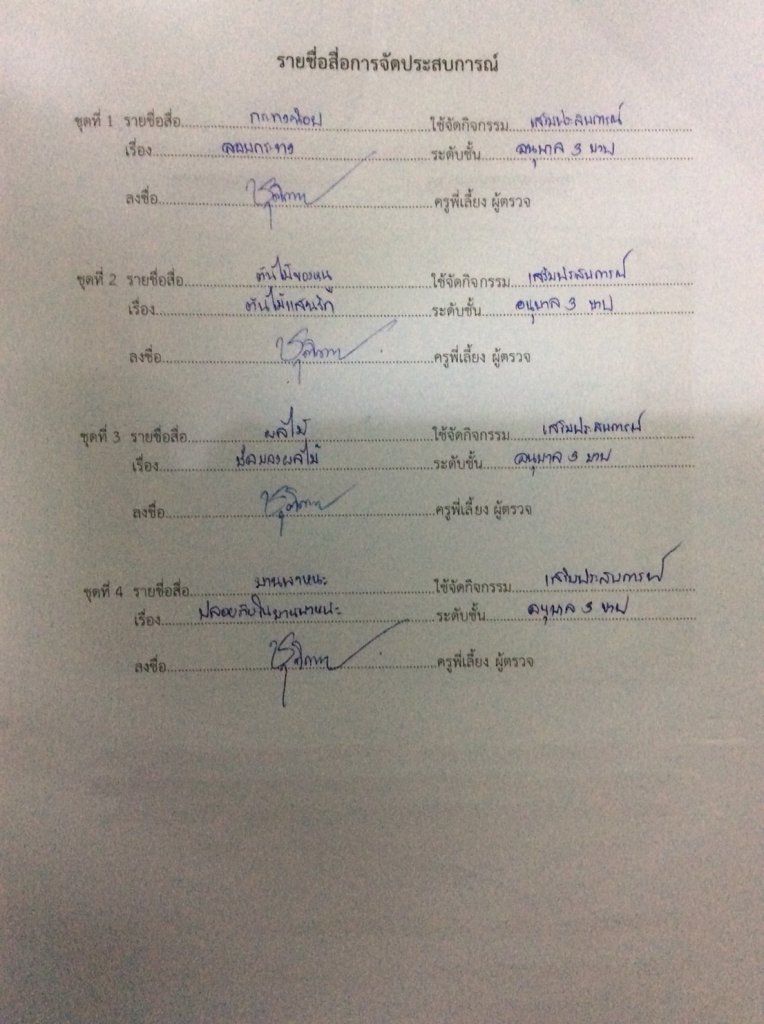 รายชื่อสื่อการจัดประสบการณ์
ชุดที่ 1 รายชื่อสื่อ กระทงน้อย ใช้จัดกิจกรรม เสริมประสบการณ์
เรื่อง ลอยกระทง ระดับชั้น อนุบาล 3 ขวบ
ลงชื่อ ครูพี่เลี้ยง ผู้ตรวจ
ชุดที่ 2 รายชื่อสื่อ ต้นไม้ของหนู ใช้จัดกิจกรรม เสริมประสบการณ์
เรื่อง ต้นไม้แสนรัก ระดับชั้น อนุบาล 3 ขวบ
ลงชื่อ ครูพี่เลี้ยง ผู้ตรวจ
ชุดที่ 3 รายชื่อสื่อ ผลไม้ ใช้จัดกิจกรรม เสริมประสบการณ์
เรื่อง ผลไม้ ระดับชั้น อนุบาล 3 ขวบ
ลงชื่อ ครูพี่เลี้ยง ผู้ตรวจ
ชุดที่ 4 รายชื่อสื่อ ยานพาหนะ ใช้จัดกิจกรรม เสริมประสบการณ์
เรื่อง ปลอดภัยในยานพาหนะ ระดับชั้น อนุบาล 3 ขวบ
ลงชื่อ ครูพี่เลี้ยง ผู้ตรวจ